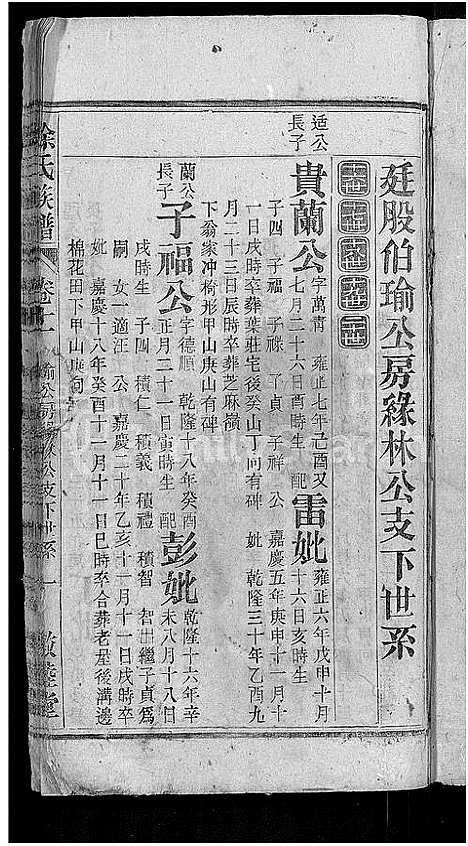 廷股伯瑜公房緣林公支下世系
适公
長子
貴蘭公
字萬青 雍正七年己酉又
七月二十六日酉時生 配
雷妣
雍正六年戊申十月
十六日亥時生
子四 子福 子貞 子祥 公 嘉慶五年庚申十一月十
一日戌時卒葬葉莊宅後癸山丁向有碑 妣 乾隆三十年乙酉九
月二十三日辰時卒葬芝麻嶺
下翁家冲椅形甲山庚山有碑
蘭公
長子
子福公
字德順 乾隆十八年癸酉
正月二十一日寅時生 配
彭妣
乾隆十六年辛
未八月十八日
戌時生 子四 積仁 積義 積禮 積智 智出繼子貞爲
嗣 女一適汪 公 嘉慶二十年乙亥十一月十一日戌時卒
妣 嘉慶十八年癸酉十一月十一日巳時卒合葬老屋後溝邊
棉花田下甲山庚向
徐氏族譜
卷十一
瑜公房緣林公支下世系
一
敦睦堂